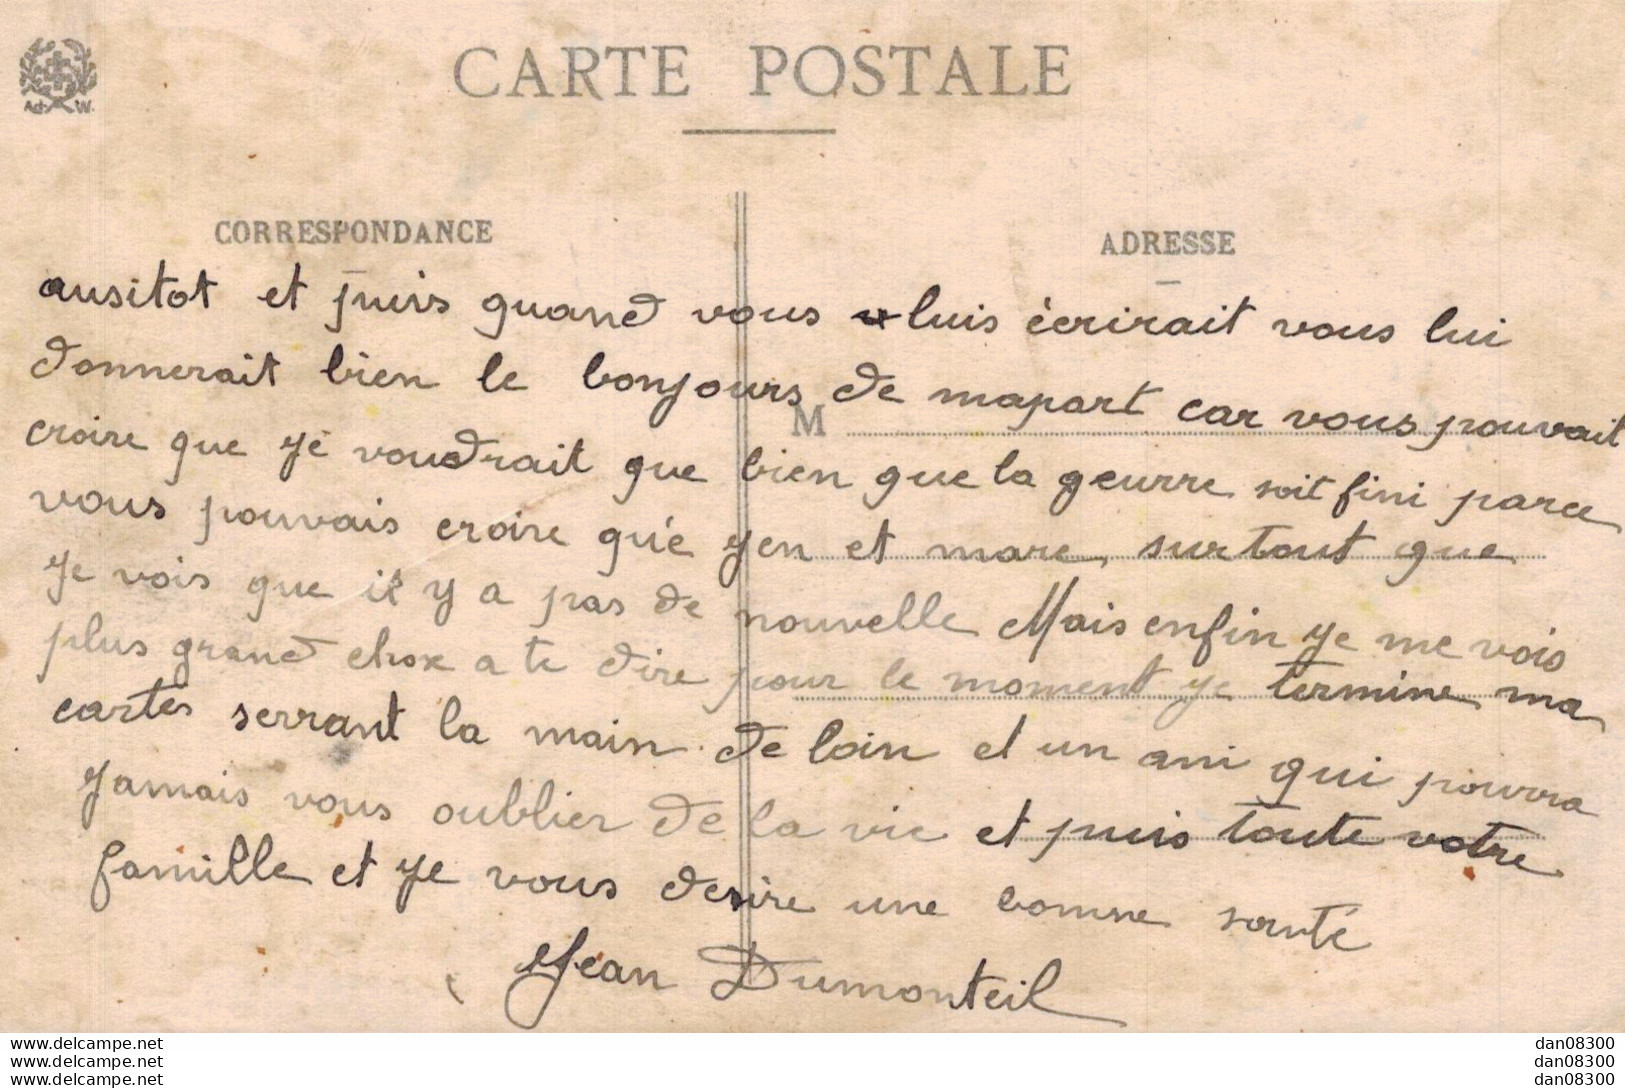 CARTE POSTALE
Ad. W.
CORRESPONDANCE
ADRESSE
M
ausitot et puis quand vous luis écrirait vous lui
donnerait bien le bonjours de mapart car vous pouvait
croire que je voudrait que bien que la geurre soit fini parce
vous pouvais croire qu'e yen et mare, surtout que
je vois que il y a pas de nouvelle Mais enfin je me vois
plus grand chose a te dire pour le moment je termine ma
cartes serrant la main de loin et un ami qui pourra
jamais vous oublier de la vie et puis toute votre
famille et je vous desire une bonne santé
Jean Dumonteil
www.delcampe.net
www.delcampe.net
www.delcampe.net
dan08300
dan08300
dan08300